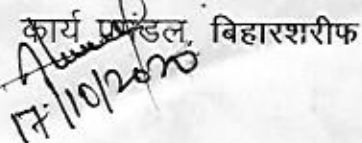 कार्य प्रमंडल, बिहारशरीफ
17/10/2020